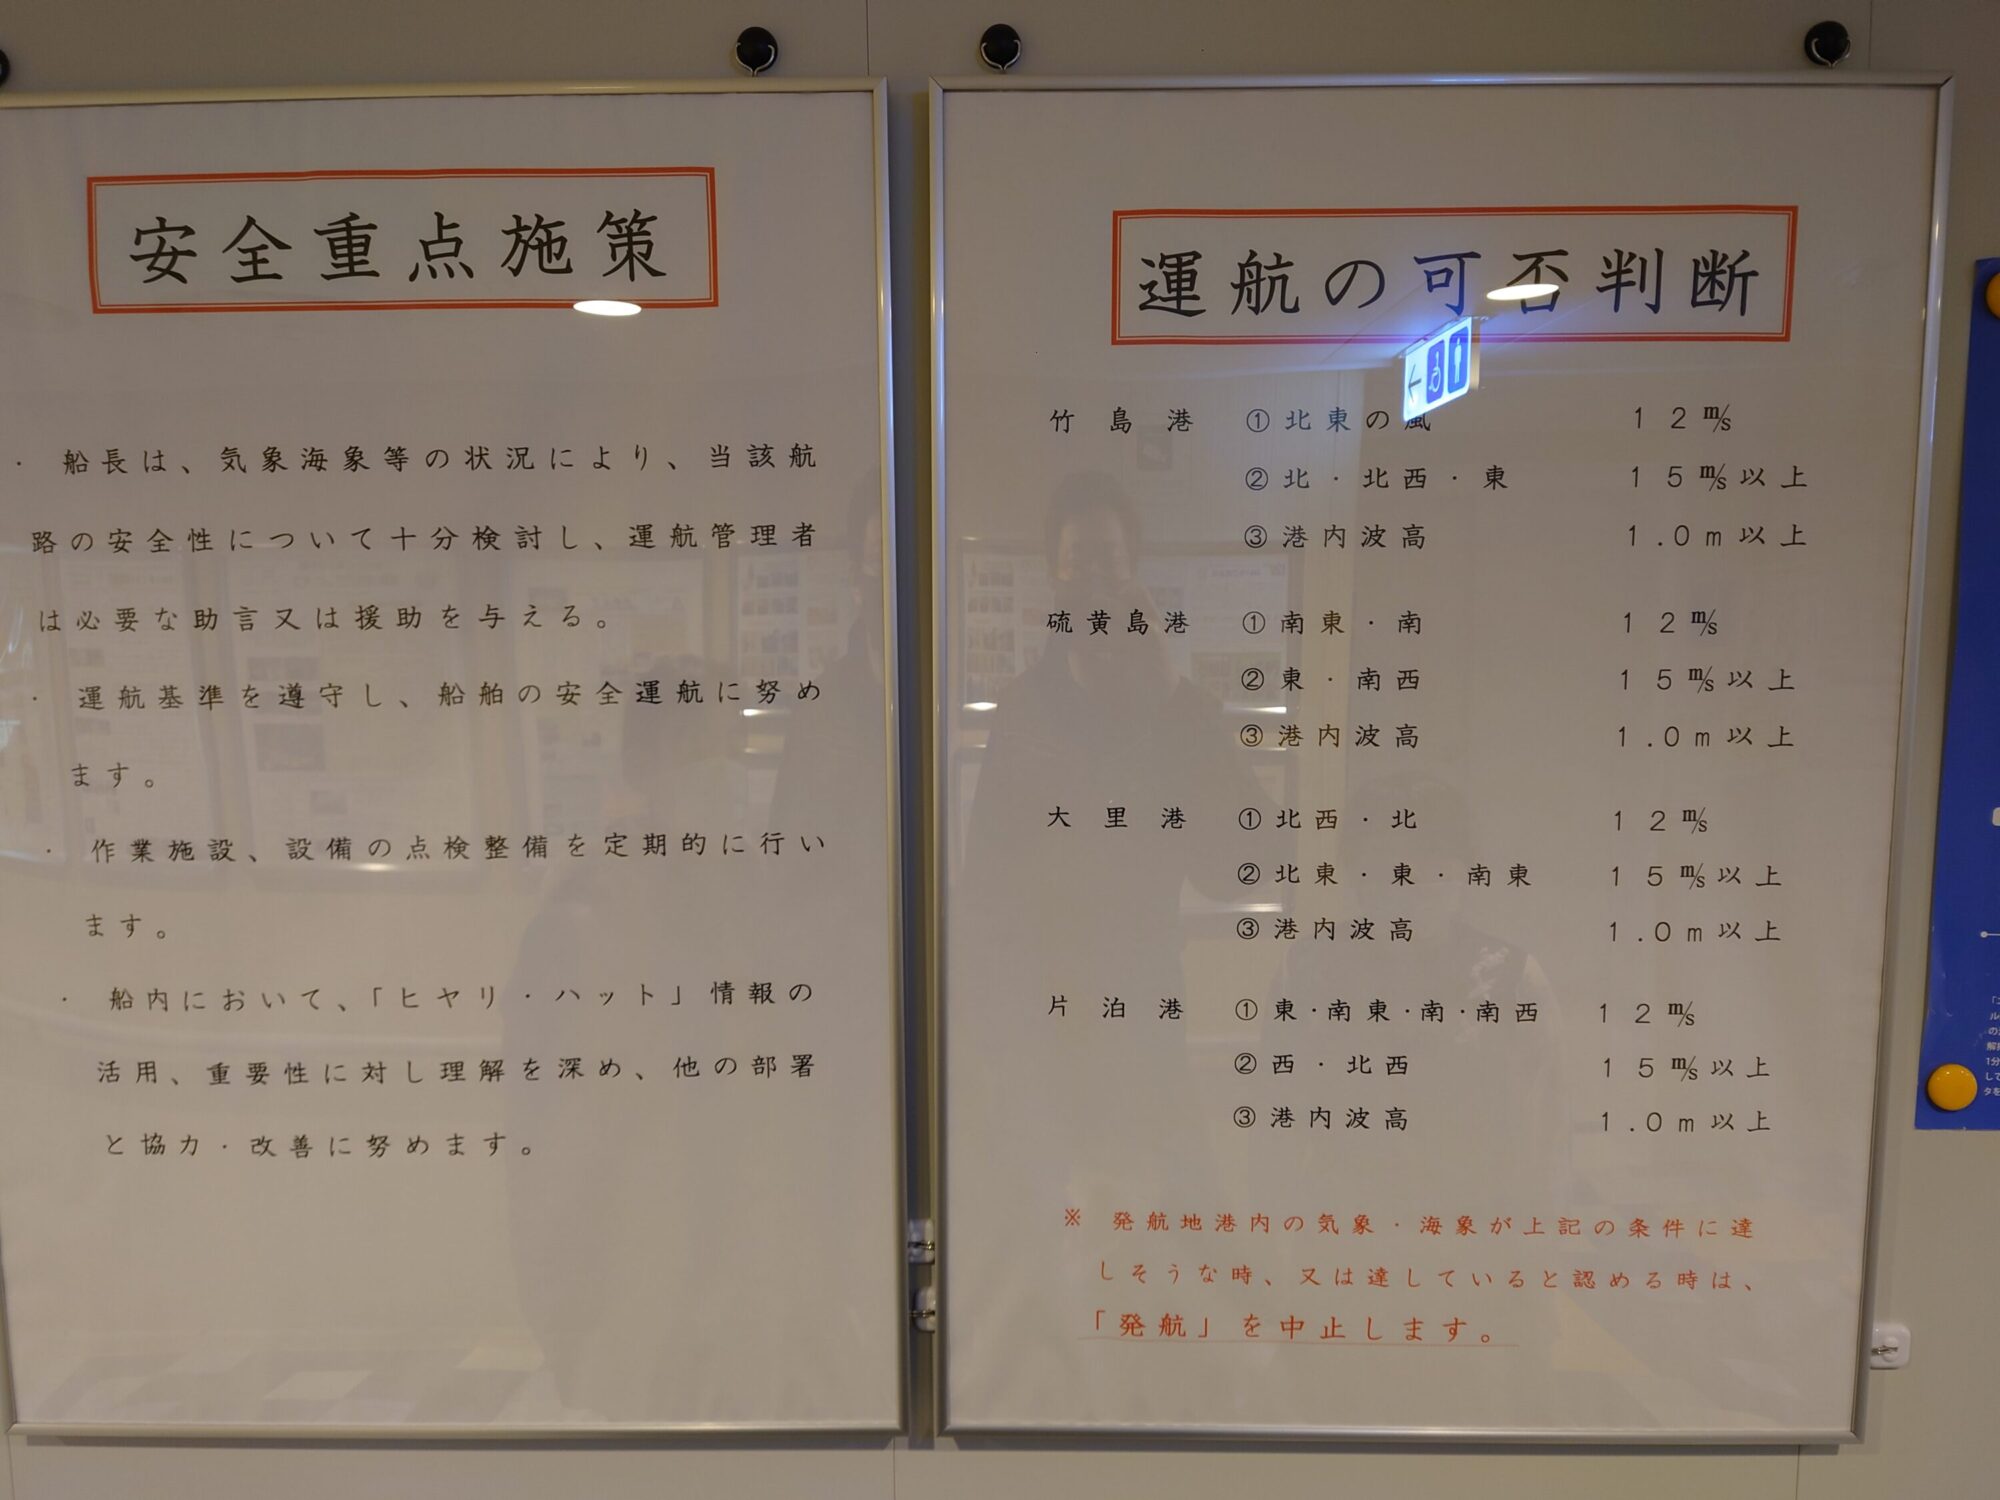 安全重点施策
・ 船長は、気象海象等の状況により、当該航
路の安全性について十分検討し、運航管理者
は必要な助言又は援助を与える。
・ 運航基準を遵守し、船舶の安全運航に努め
ます。
・ 作業施設、設備の点検整備を定期的に行い
ます。
・ 船内において、「ヒヤリ・ハット」情報の
活用、重要性に対し理解を深め、他の部署
と協力・改善に努めます。
運航の可否判断
竹島港 ①北東の風 12㎧
②北・北西・東 15㎧以上
③港内波高 1.0m以上
硫黄島港 ①南東・南 12㎧
②東・南西 15㎧以上
③港内波高 1.0m以上
大里港 ①北西・北 12㎧
②北東・東・南東 15㎧以上
③港内波高 1.0m以上
片泊港 ①東・南東・南・南西 12㎧
②西・北西 15㎧以上
③港内波高 1.0m以上
※ 発航地港内の気象・海象が上記の条件に達
しそうな時、又は達していると認める時は、
「発航」を中止します。